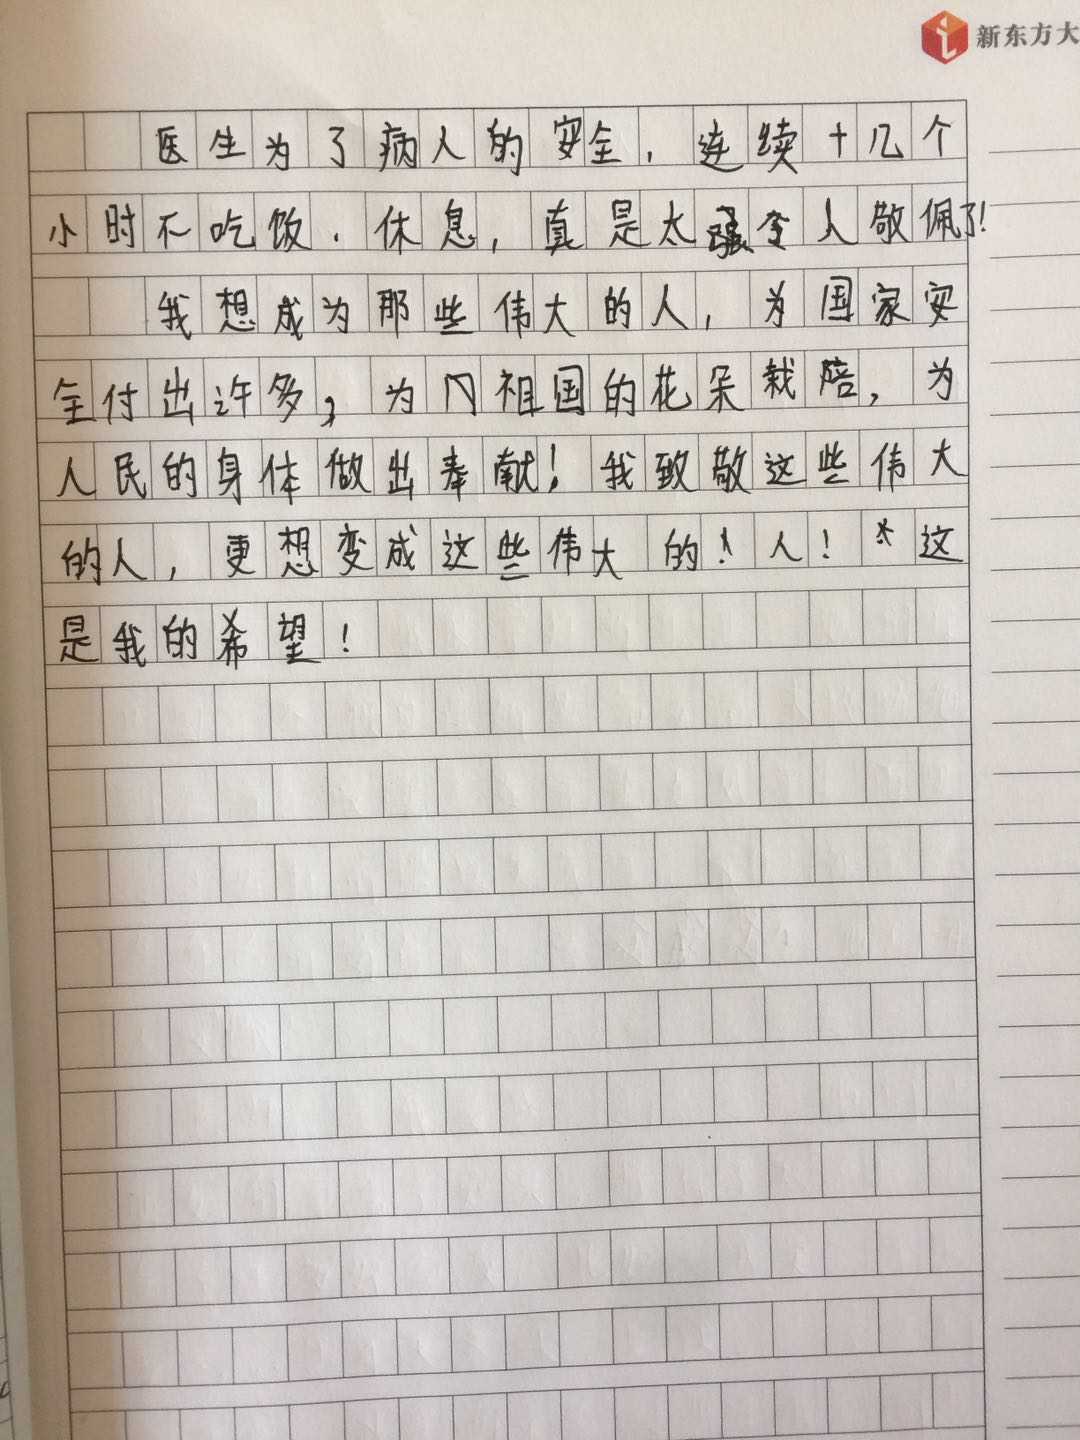 新东方大
医生为了病人的安全，连续十几个
小时不吃饭．休息，真是太令人敬佩了！
我想成为那些伟大的人，为国家安
全付出许多，为门祖国的花朵栽陪，为
人民的身体做出奉献！我致敬这些伟大
的人，更想变成这些伟大的人！这
是我的希望！